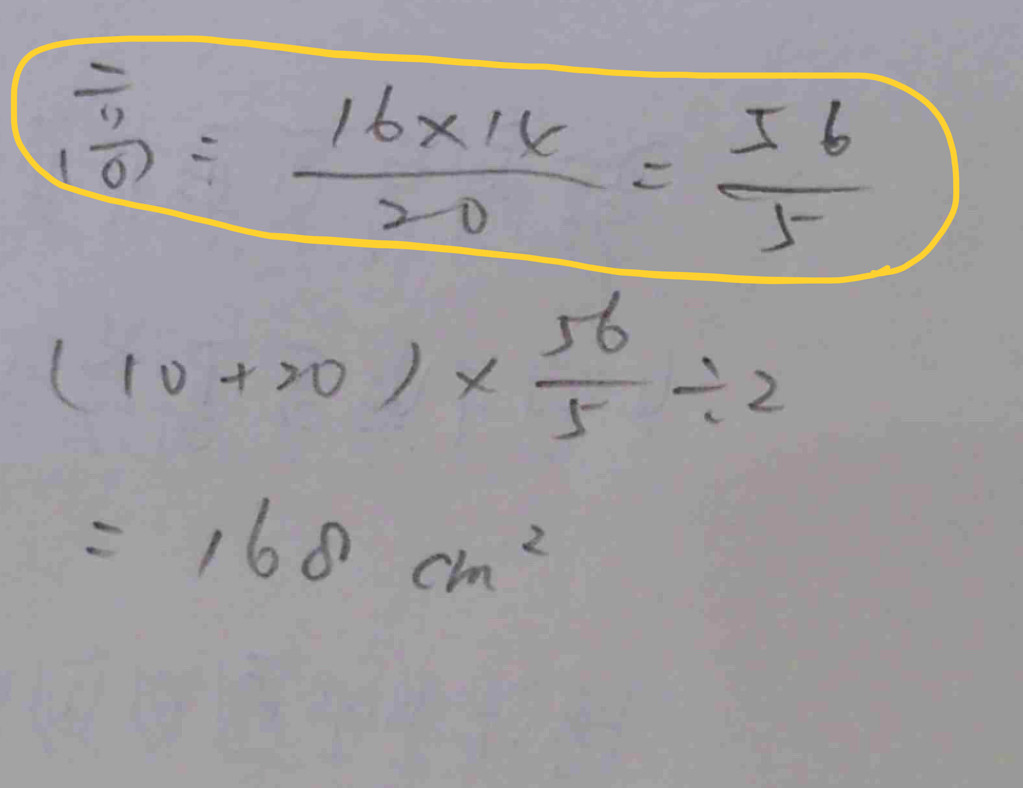 高 = 16×14/20 = 56/5
(10+20)×56/5÷2
= 168 cm²